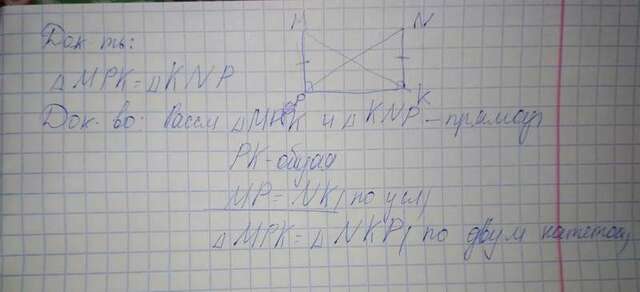 М N
Док-ть:
△MPK=△KNP
P K
Док-во: Рассм △MPK и △KNP-прямоуг
PK-общая
MP=NK(по усл)
△MPK=△NKP(по двум катетам)